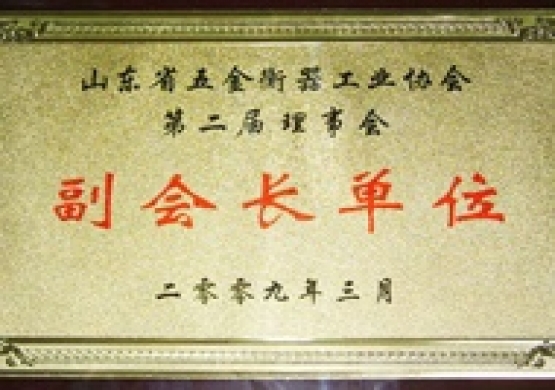 山东省五金衡器工业协会
第二届理事会
副会长单位
二零零九年三月